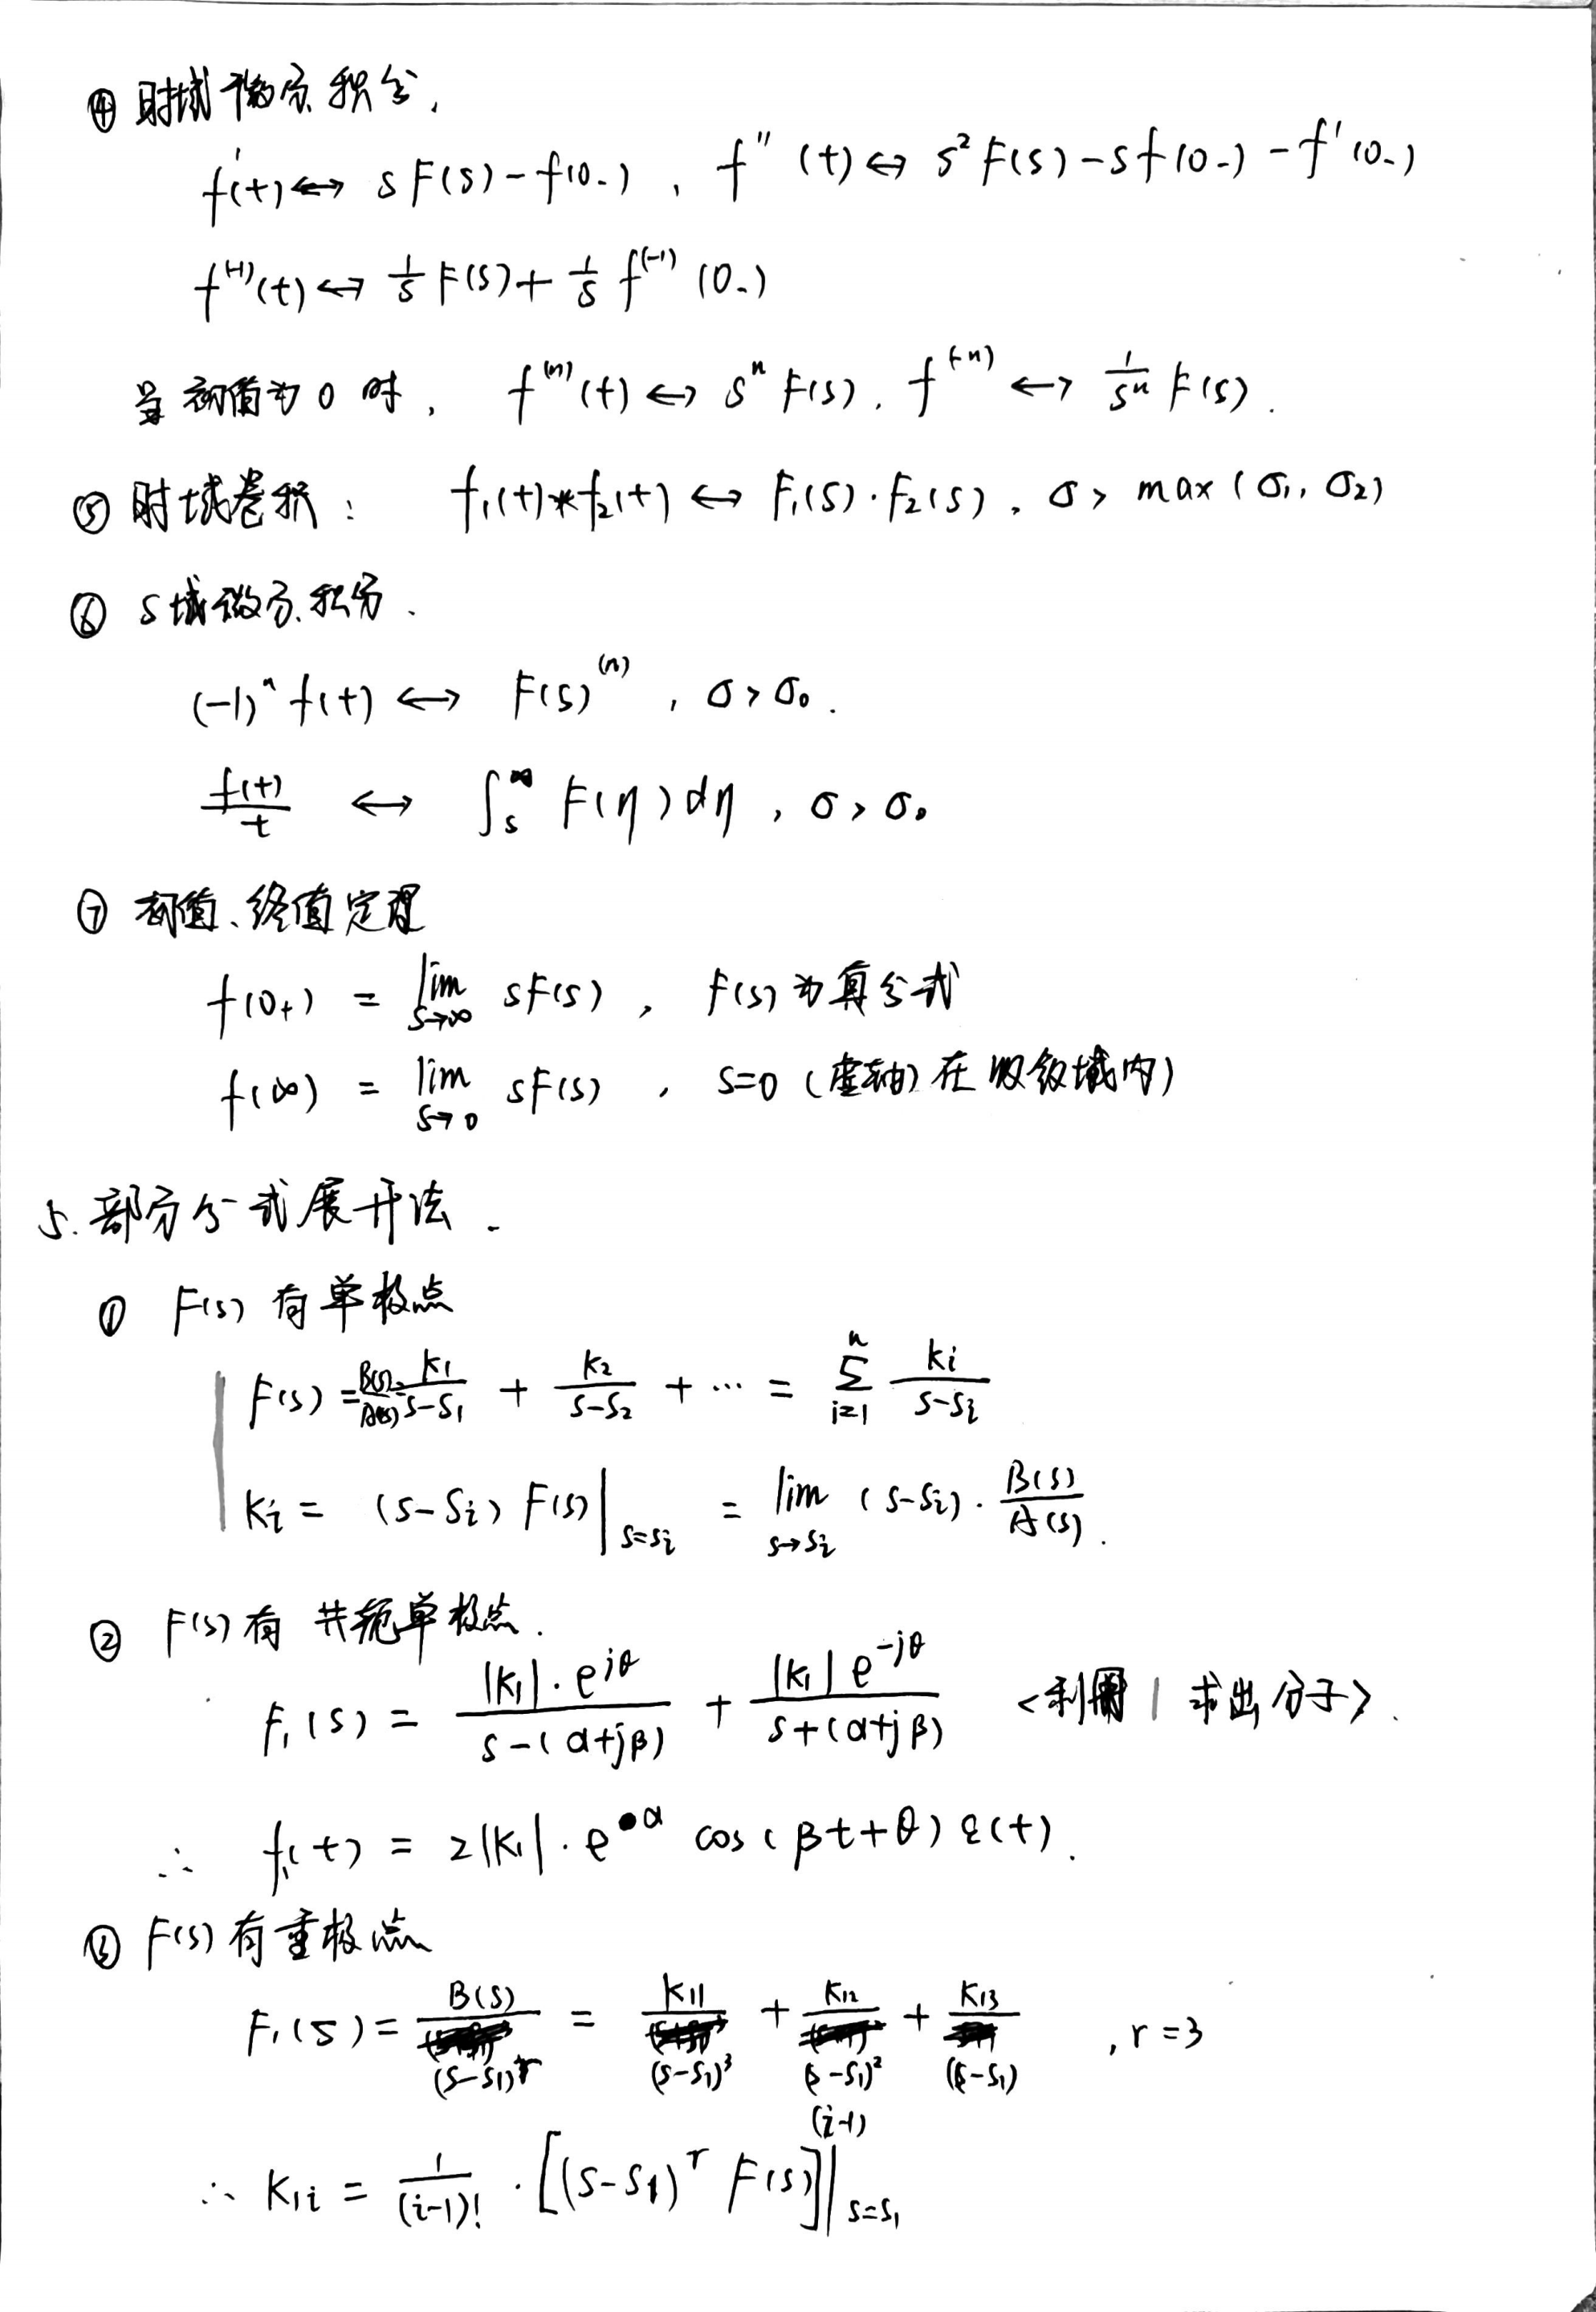 ④ 时域微分积分.
f'(t) ↔ sF(s) - f(0-) , f''(t) ↔ s²F(s) - sf(0-) - f'(0-)
f^(-1)(t) ↔ 1/s F(s) + 1/s f^(-1)(0-)
当初值为0时, f^(n)(t) ↔ s^n F(s), f^(-n) ↔ 1/s^n F(s).
⑤ 时域卷积: f₁(t)*f₂(t) ↔ F₁(s)·F₂(s), σ > max(σ₁, σ₂)
⑥ S域微分、积分.
(-1)^n f(t) ↔ F(s)^(n) , σ > σ₀.
f(t)/t ↔ ∫_s^∞ F(η)dη , σ > σ₀
⑦ 初值、终值定理
f(0+) = lim_{s→∞} sF(s) , F(s)为真分式
f(∞) = lim_{s→0} sF(s) , s=0 (虚轴)在收敛域内)
5. 部分分式展开法.
① F(s) 有单极点
F(s) = B(s)/A(s) = K₁/(s-s₁) + K₂/(s-s₂) + ⋯ = ∑_{i=1}^n Ki/(s-si)
Ki = (s-si) F(s)|_{s=si} = lim_{s→si} (s-si)·B(s)/A(s).
② F(s)有 共轭单极点.
F₁(s) = |K₁|·e^{jθ}/(s-(α+jβ)) + |K₁|e^{-jθ}/(s+(α+jβ)) <利用 | 求出分子>.
∴ f₁(t) = 2|K₁|·e^α cos(βt+θ) ε(t).
③ F(s)有重极点
F₁(s) = B(s)/(s-s₁)^r = K₁₁/(s-s₁)³ + K₁₂/(s-s₁)² + K₁₃/(s-s₁) , r=3
∴ K₁i = 1/(i-1)! · [(s-s₁)^r F(s)]^(i-1)|_{s=s₁}